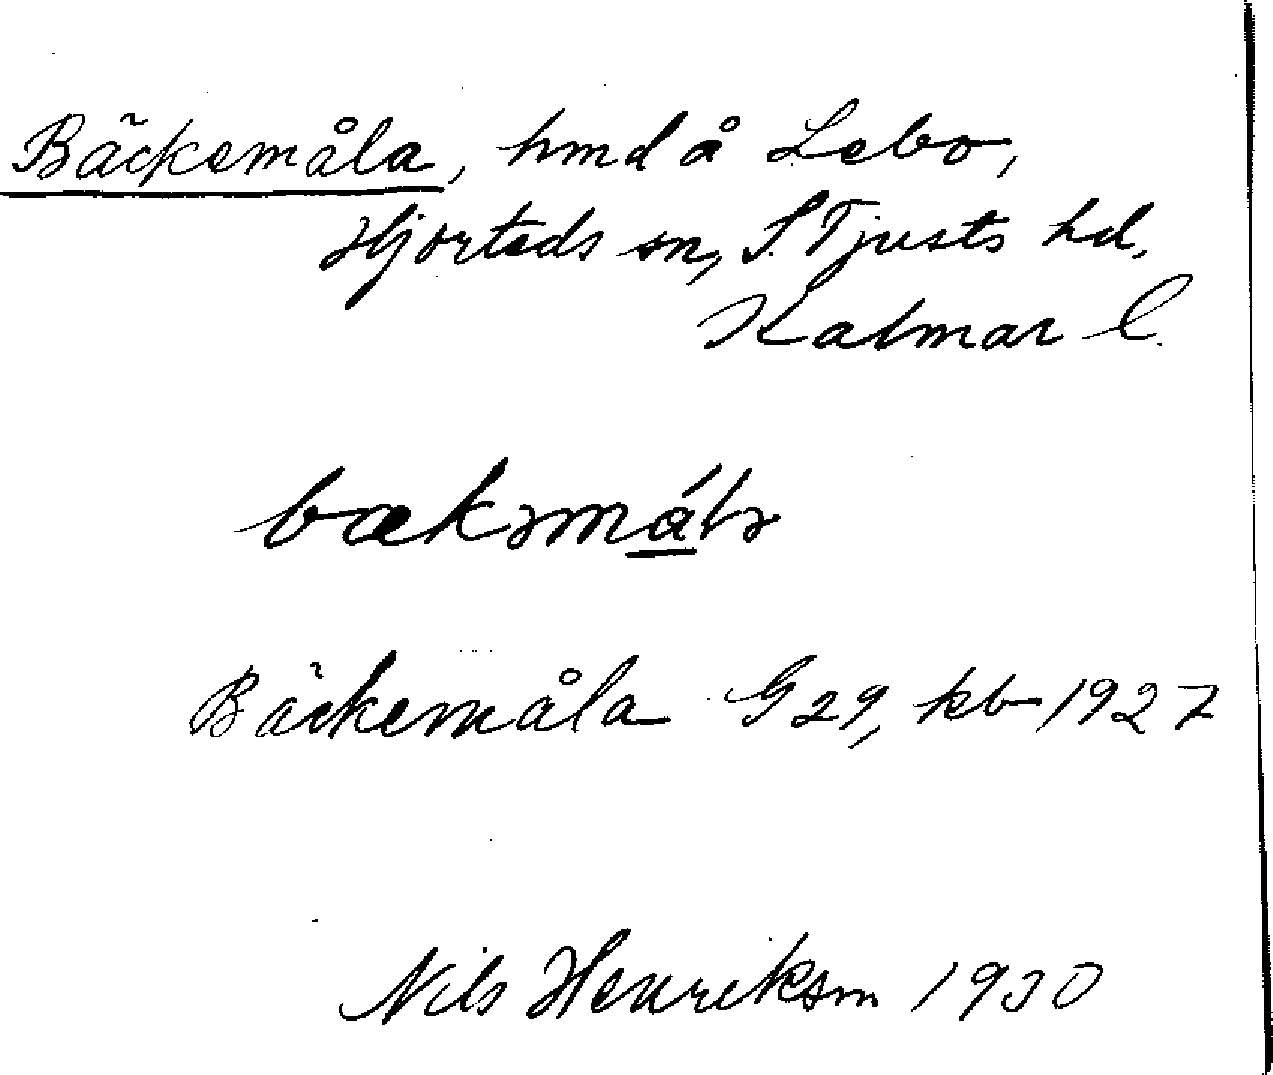 Bäckemåla, hmd å Lebo,
Hjorteds sn, S. Tjusts hd,
Kalmar l.
bækəmålə
Bäckemåla G 29, kb 1927
Nils Henriksson 1930